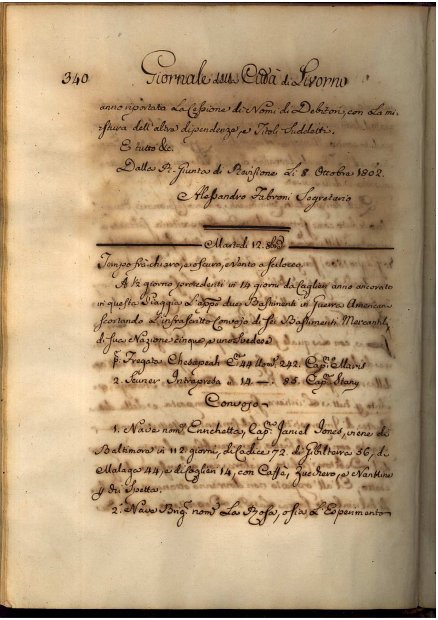 340 Giornale della Città di Livorno
anno riportata la Cessione di Nomi di Debitori, con la mi-
stura dell'altre dipendenze, e Titoli Suddetti.
E tutto &c.
Dalla R. Giunta di Revisione li 8 Ottobre 1802.
Alessandro Fabroni Segretario
Martedì 12. 8bre
Tempo frà chiaro, e oscuro, e vento a scilocco
A ½ giorno procedenti in 14 giorni da Caglieri anno ancorato
in questa Piaggia l'app.º due Bastimenti in Guerra American
scortando l'infrascritto Convojo di Sei Bastimenti Mercantil
di sua Nazione cinque, e uno Svedese
p.ª Fregata Chesapeah C.ni 44 Uom.i 242. Cap.º Maris
2. Scuner Intrapresa 14 —. 85. Cap.º
Convojo
1. Nave nom.ª Enrichetta, Cap.º Janiel Jones, viene da
Baltimora in 112 giorni, di Cadice 72. di Gibilterra 56, di
Malaga 44, e di Caglieri 14, con Caffè, Zucchero, e
p. dti Spetta.
2.ª Nave Brig.º nom.º La Rosa, osia l'Esperimento